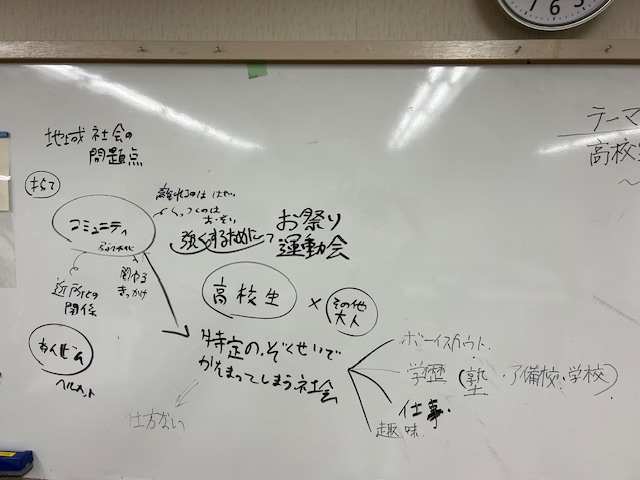 テーマ
高校生
～
地域社会の
問題点
コミュニティ
近所との
関係
関わる
きっかけ
離れるのは はやい
くっつくのは
おそい
強くするために→
お祭り
運動会
高校生
×
その他
大人
ヘルメット
特定の、ぞくせいで
かたまってしまう社会
仕方ない
ボーイスカウト
学歴(塾・予備校・学校)
仕事・
趣味